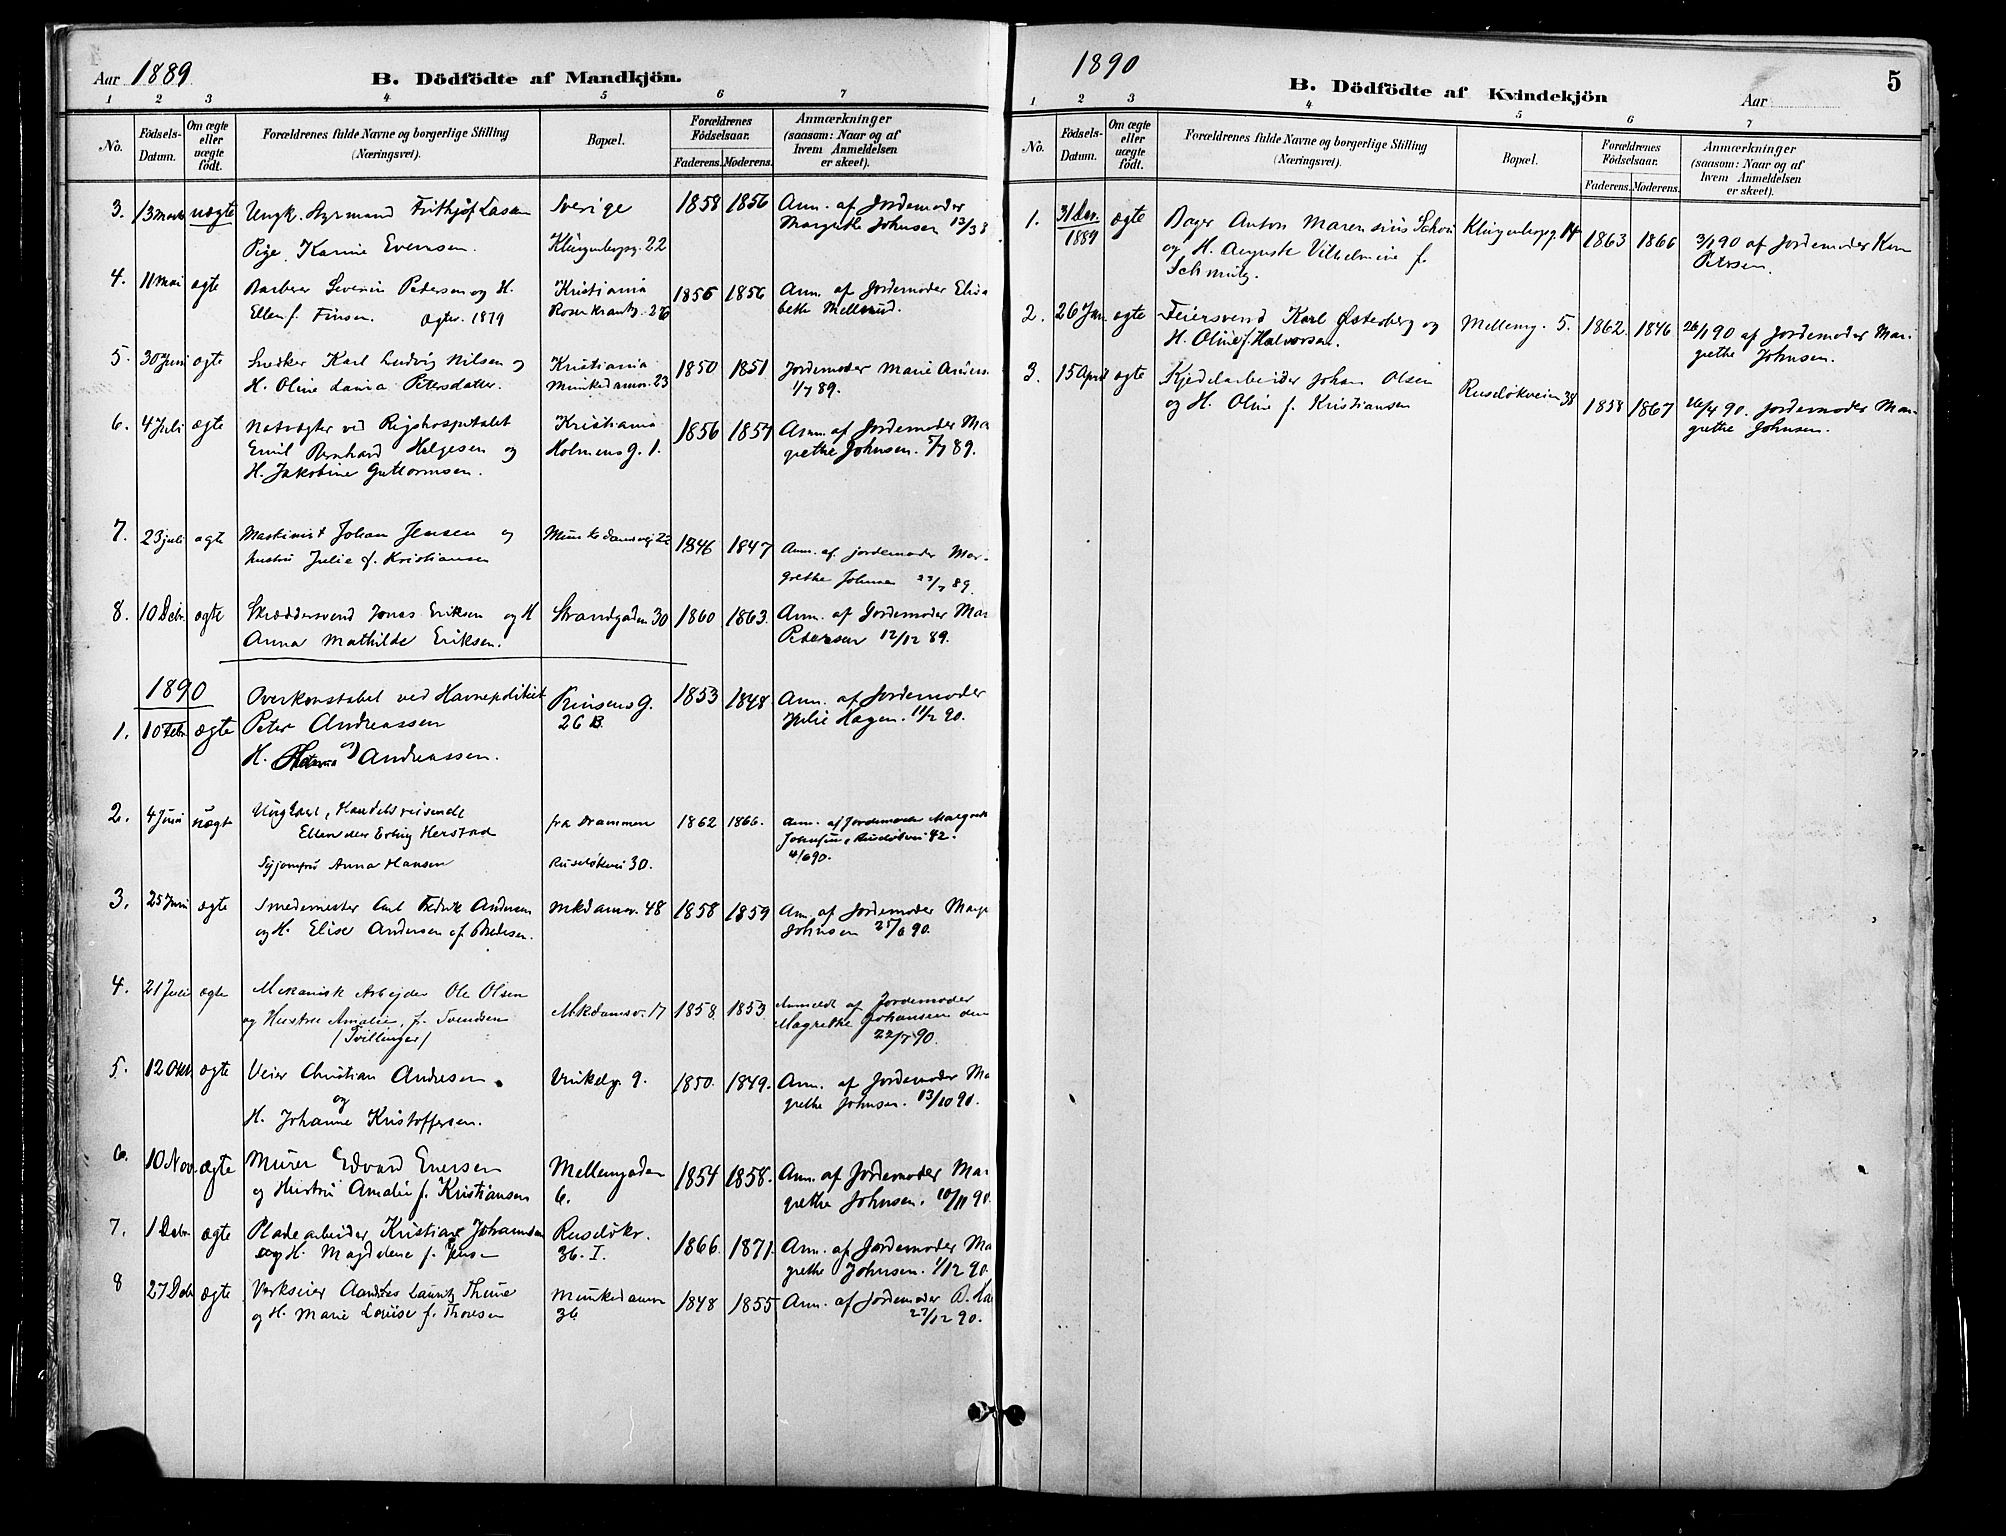 Aar 1889
B. Dödfödte af Mandkjön.
1 2 3 4 5 6 7
No.
Födsels-
Datum.
Om ægte
eller
uægte
født.
Forældrenes fulde Navne og borgerlige Stilling
(Næringsvei).
Bopæl.
Forældrenes
Födselsaar.
Faderens. Moderens.
Anmærkninger
(saasom: Naar og af
hvem Anmeldelsen
er skeet).
3. 13 Marts uægte Ungk. Styrmand Frithjof Lassen Sverige 1858 1856 Anm. af Jordemoder
Margrethe Johnsen 13/3 8
Pige Karine Evensen. Klingenbergg. 22
4. 11 Mai ægte Barberer Severin Pedersen og H. Kristiania 1856 1856 Anm. af Jordemoder Elisa
Ellen f. Finsen. Ægtev. 1879 Rosenkrantz. 26 beth Mellerud.
5. 30 Juni ægte Snedker Karl Ludvig Nilsen og Kristiania 1850 1851 Jordemoder Marie Anders
H. Oline Lania Petersdatter. Munkedamsv. 23 1/7 89.
6. 4 Juli ægte Natvægter ved Rigshospitalet Kristiania 1856 1857 Anm. af Jordemoder Ma
Emil Bernhard Helgesen og Holmensg. 1. grethe Johnsen. 5/7 89.
H. Jakobine Guttormsen.
7. 23 juli ægte Maskinist Johan Jensen og Munkedamsvej 22 1846 1847 Anm. af jordemoder Mar-
hustru Julie f. Kristiansen grethe Johnsen 23/7 89.
8. 10 Debr. ægte Skræddersvend Jonas Eriksen og H Strandgaden 30 1860 1863. Anm. af Jordemoder Mar
Anna Mathilde Eriksen. Petersen 12/12 89.
1890
1. 10 Febr. ægte Overkonstabel ved Havnepolitiet Prinsens g. 1853 1848. Anm. af Jordemoder
Peter Andreassen 26 B. Julie Hagen. 11/2 90.
H. Andreassen.
2. 4 Juni uægte Ungkarl, Handelsreisende
Ellen der Erling Herstad fra Drammen 1862 1866. Anm. af Jordemoder Margreth
Johnsen, Ruseløkvei 42.
Syjomfru Anna Hansen Ruseløkvei 30. 4/6 90.
3. 25 Juni ægte Smedemester Carl Fredrik Andersen Mkdamsv. 48 1858 1859 Anm. af Jordemoder Marg
og H. Elise Andersen f. Pedersen. Johnsen 25/6 90.
4. 21 Juli ægte Mekanisk Arbejder Ole Olsen Mkdamsv. 17 1858 1853 Anmeldt af Jordemoder
og Hustru Amalie, f. Svendsen Magrethe Johansen den
/Tvillinger/ 22/7 90.
5. 12 Okt. ægte Veier Christian Andresen Vinkelg. 9. 1850. 1849. Anm. af Jordemoder Ma
og grethe Johnsen. 13/10 90.
H. Johanne Kristoffersen.
6. 10 Nov. ægte Murer Edvard Enersen Mellemgaden 1854 1858. Anm. af Jordemoder Mar
og Hustru Amalie f. Kristiansen 6. grethe Johnsen. 10/11 90.
7. 1 Debr. ægte Pladearbeider Kristian Johannsen Ruseløkv. 1866 1871. Anm. af Jordemoder Ma
og H. Magdalene f. Jensen 36. I. grethe Johnsen. 1/12 90.
8 27 Debr ægte Verkseier Lauritz Thune Munkedamsv 1848 1855 Anm. af Jordemoder B. La
og H. Marie Louise f. Thoresen 36 27/12 90.
1890
B. Dödfödte af Kvindekjön
Aar
5
1 2 3 4 5 6 7
No.
Födsels-
Datum.
Om ægte
eller
uægte
født.
Forældrenes fulde Navne og borgerlige Stilling
(Næringsvei).
Bopæl.
Forældrenes
Födselsaar.
Faderens. Moderens.
Anmærkninger
(saasom: Naar og af
hvem Anmeldelsen
er skeet).
1. 31 Des. 1889 ægte Bager Anton Marensius Schou Klingenbergg. 14 1863 1866 3/1 90 af Jordemoder Karen
og H. Auguste Vilhelmine f. Petersen.
Schmutz.
2. 26 Jan. ægte Feiersvend Karl Østerberg og Mellemg. 5. 1862. 1846 26/1 90 af Jordemoder Mar-
H. Oline f. Halvorsen. grethe Johnsen.
3. 15 April ægte Kjedelarbeider Johan Olsen Ruseløkveien 38 1858 1867 16/4 90. Jordemoder Mar-
og H. Oline f. Kristiansen grethe Johnsen.